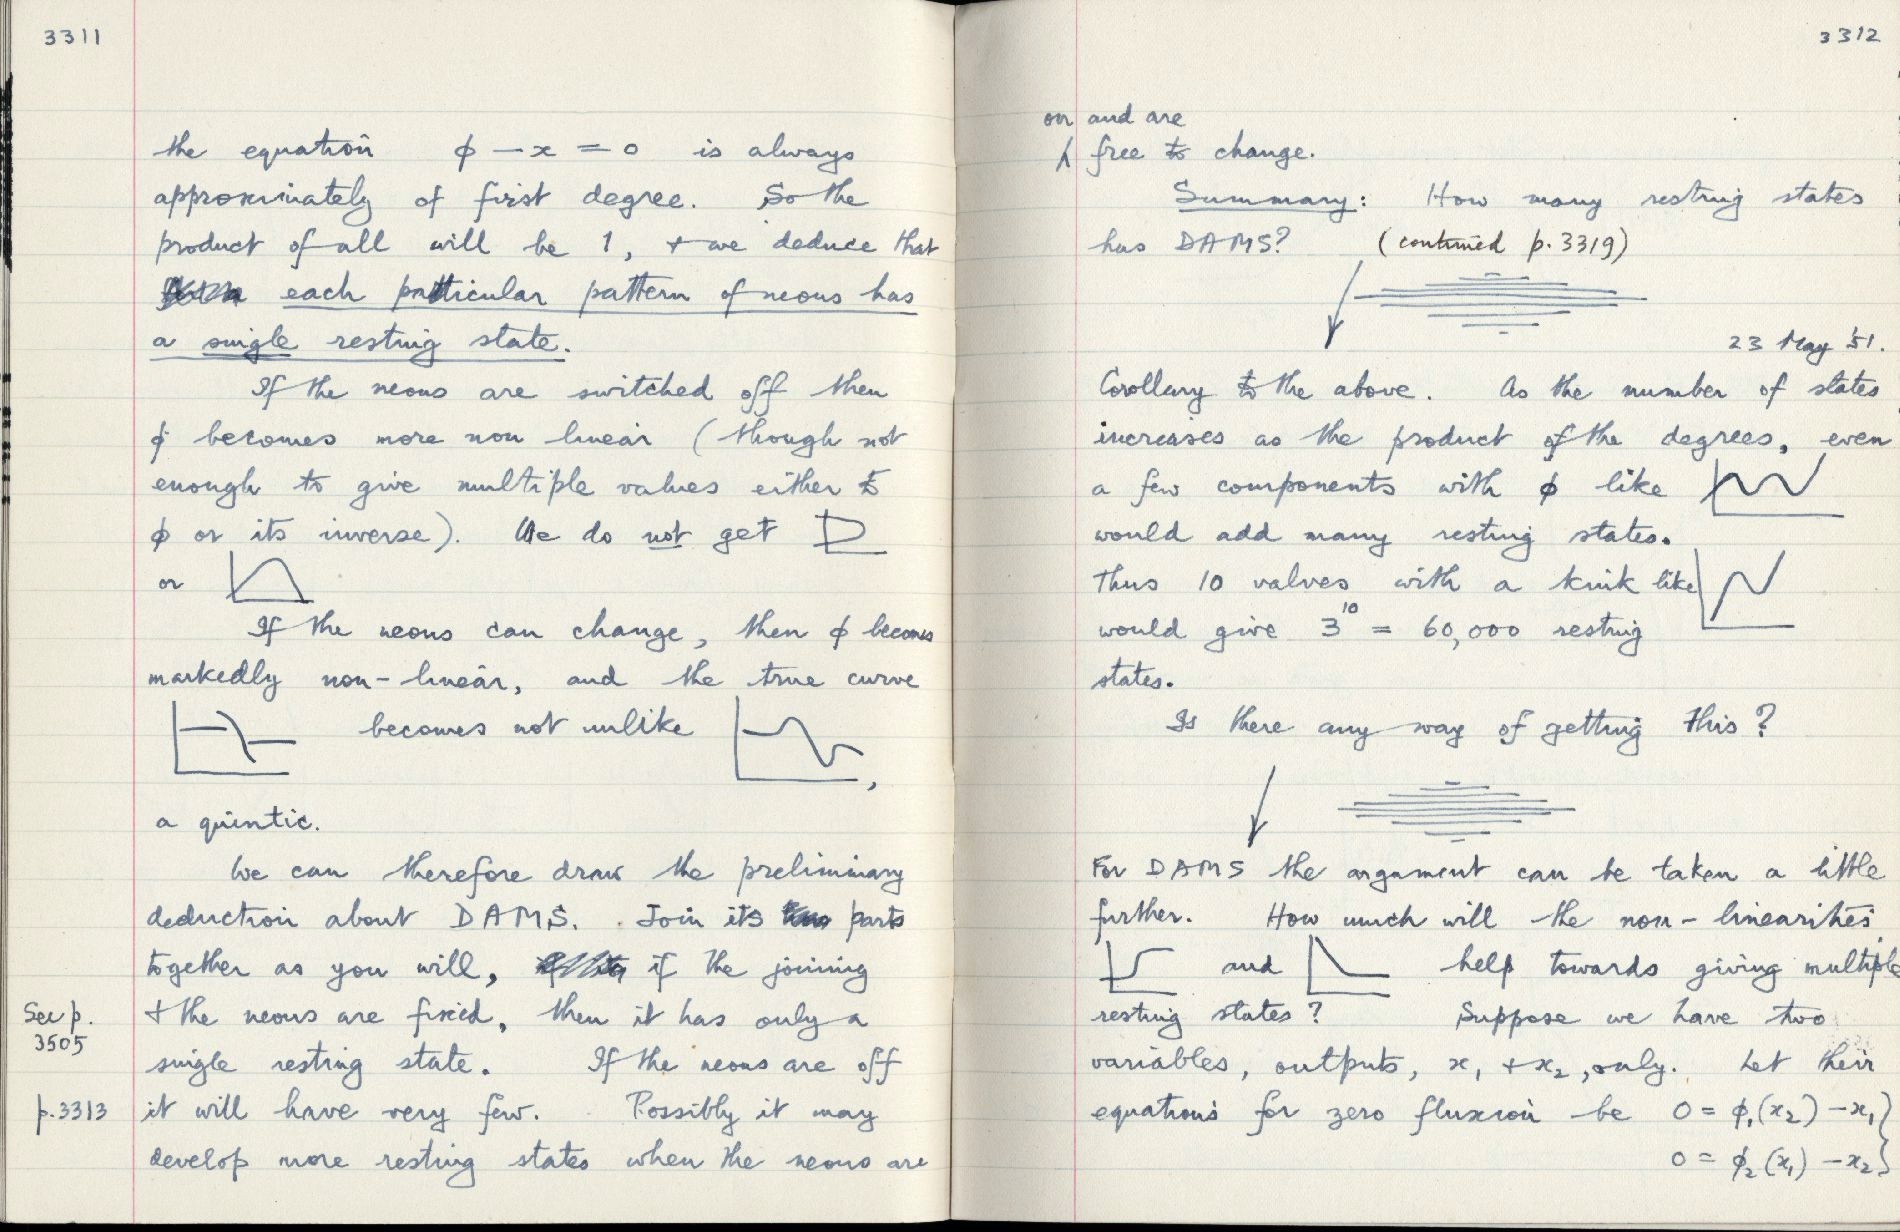 3311
the equation ϕ − x = 0 is always
approximately of first degree. So the
product of all will be 1, + we deduce that
each particular pattern of neons has
a single resting state.
If the neons are switched off then
ϕ becomes more non linear (though not
enough to give multiple values either to
ϕ or its inverse). We do not get
or
If the neons can change, then ϕ becomes
markedly non-linear, and the true curve
becomes not unlike
,
a quintic.
We can therefore draw the preliminary
deduction about DAMS. Join its parts
together as you will, if the joining
See p. 3505
+ the neons are fixed, then it has only a
single resting state. If the neons are off
p. 3313
it will have very few. Possibly it may
develop more resting states when the neons are
3312
on and are
free to change.
Summary: How many resting states
has DAMS? (continued p. 3319)
23 May '51.
Corollary to the above. As the number of states
increases as the product of the degrees, even
a few components with ϕ like
would add many resting states.
Thus 10 valves with a kink like
would give 3^10 = 60,000 resting
states.
Is there any way of getting this?
For DAMS the argument can be taken a little
further. How much will the non-linearities
and help towards giving multiple
resting states? Suppose we have two
variables, outputs, x₁ + x₂, only. Let their
equations for zero fluxion be 0 = ϕ₁(x₂) − x₁ }
0 = ϕ₂(x₁) − x₂ }